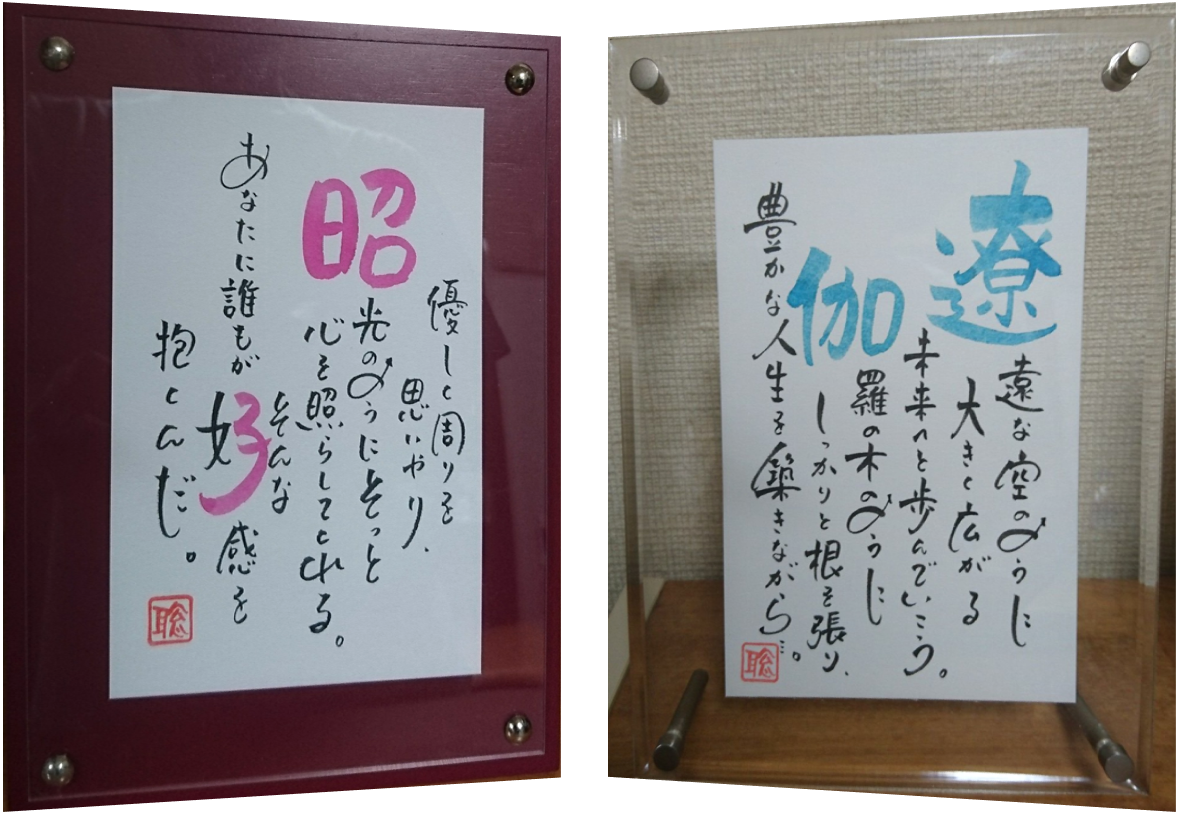 昭
優しく周りを
思いやり、
光のようにそっと
心を照らしてくれる。
そんな
あなたに誰もが好感を
抱くんだ。
聡
遼
遠な空のように
大きく広がる
未来へと歩んでいこう。
伽
羅の木のように
しっかりと根を張り、
豊かな人生を築きながら…。
聡